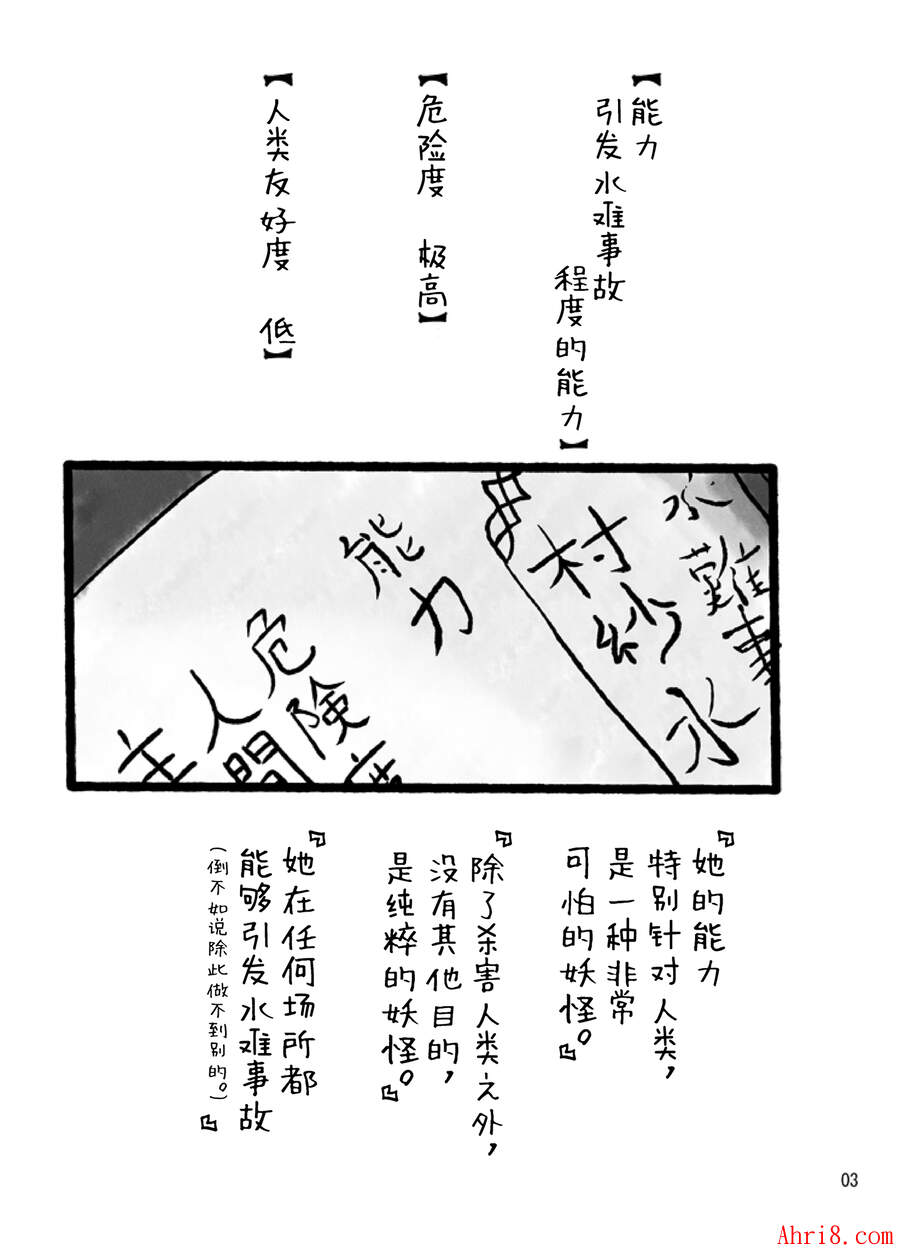 【能力
引发水难事故
程度的能力】
【危险度 极高】
【人类友好度 低】
水難事
村紗水
能力
危険度
人間
主
『她的能力
特别针对人类，
是一种非常
可怕的妖怪。』
『除了杀害人类之外，
没有其他目的，
是纯粹的妖怪。』
『她在任何场所都
能够引发水难事故
（倒不如说除此做不到别的。）』
03
Ahri8.com